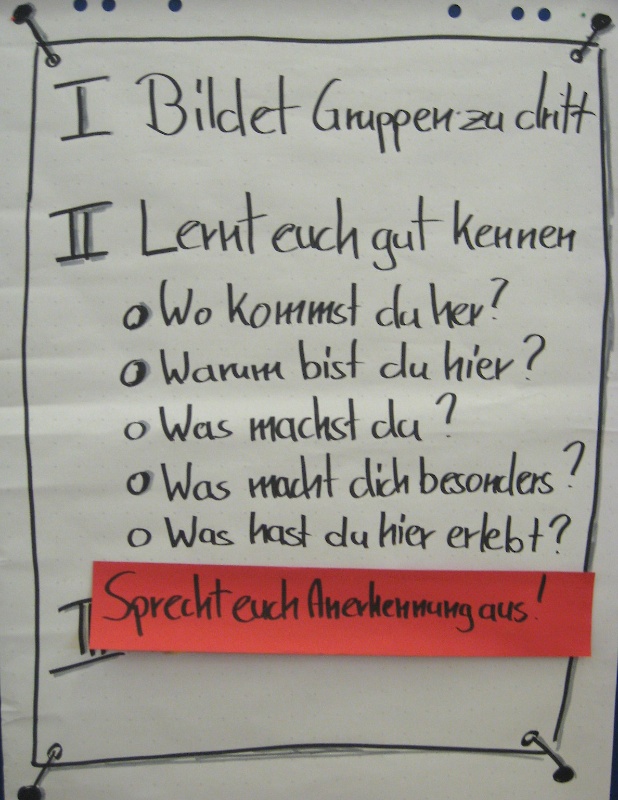 I Bildet Gruppen zu dritt
II Lernt euch gut kennen
o Wo kommst du her?
o Warum bist du hier?
o Was machst du?
o Was macht dich besonders?
o Was hast du hier erlebt?
Sprecht euch Anerkennung aus!